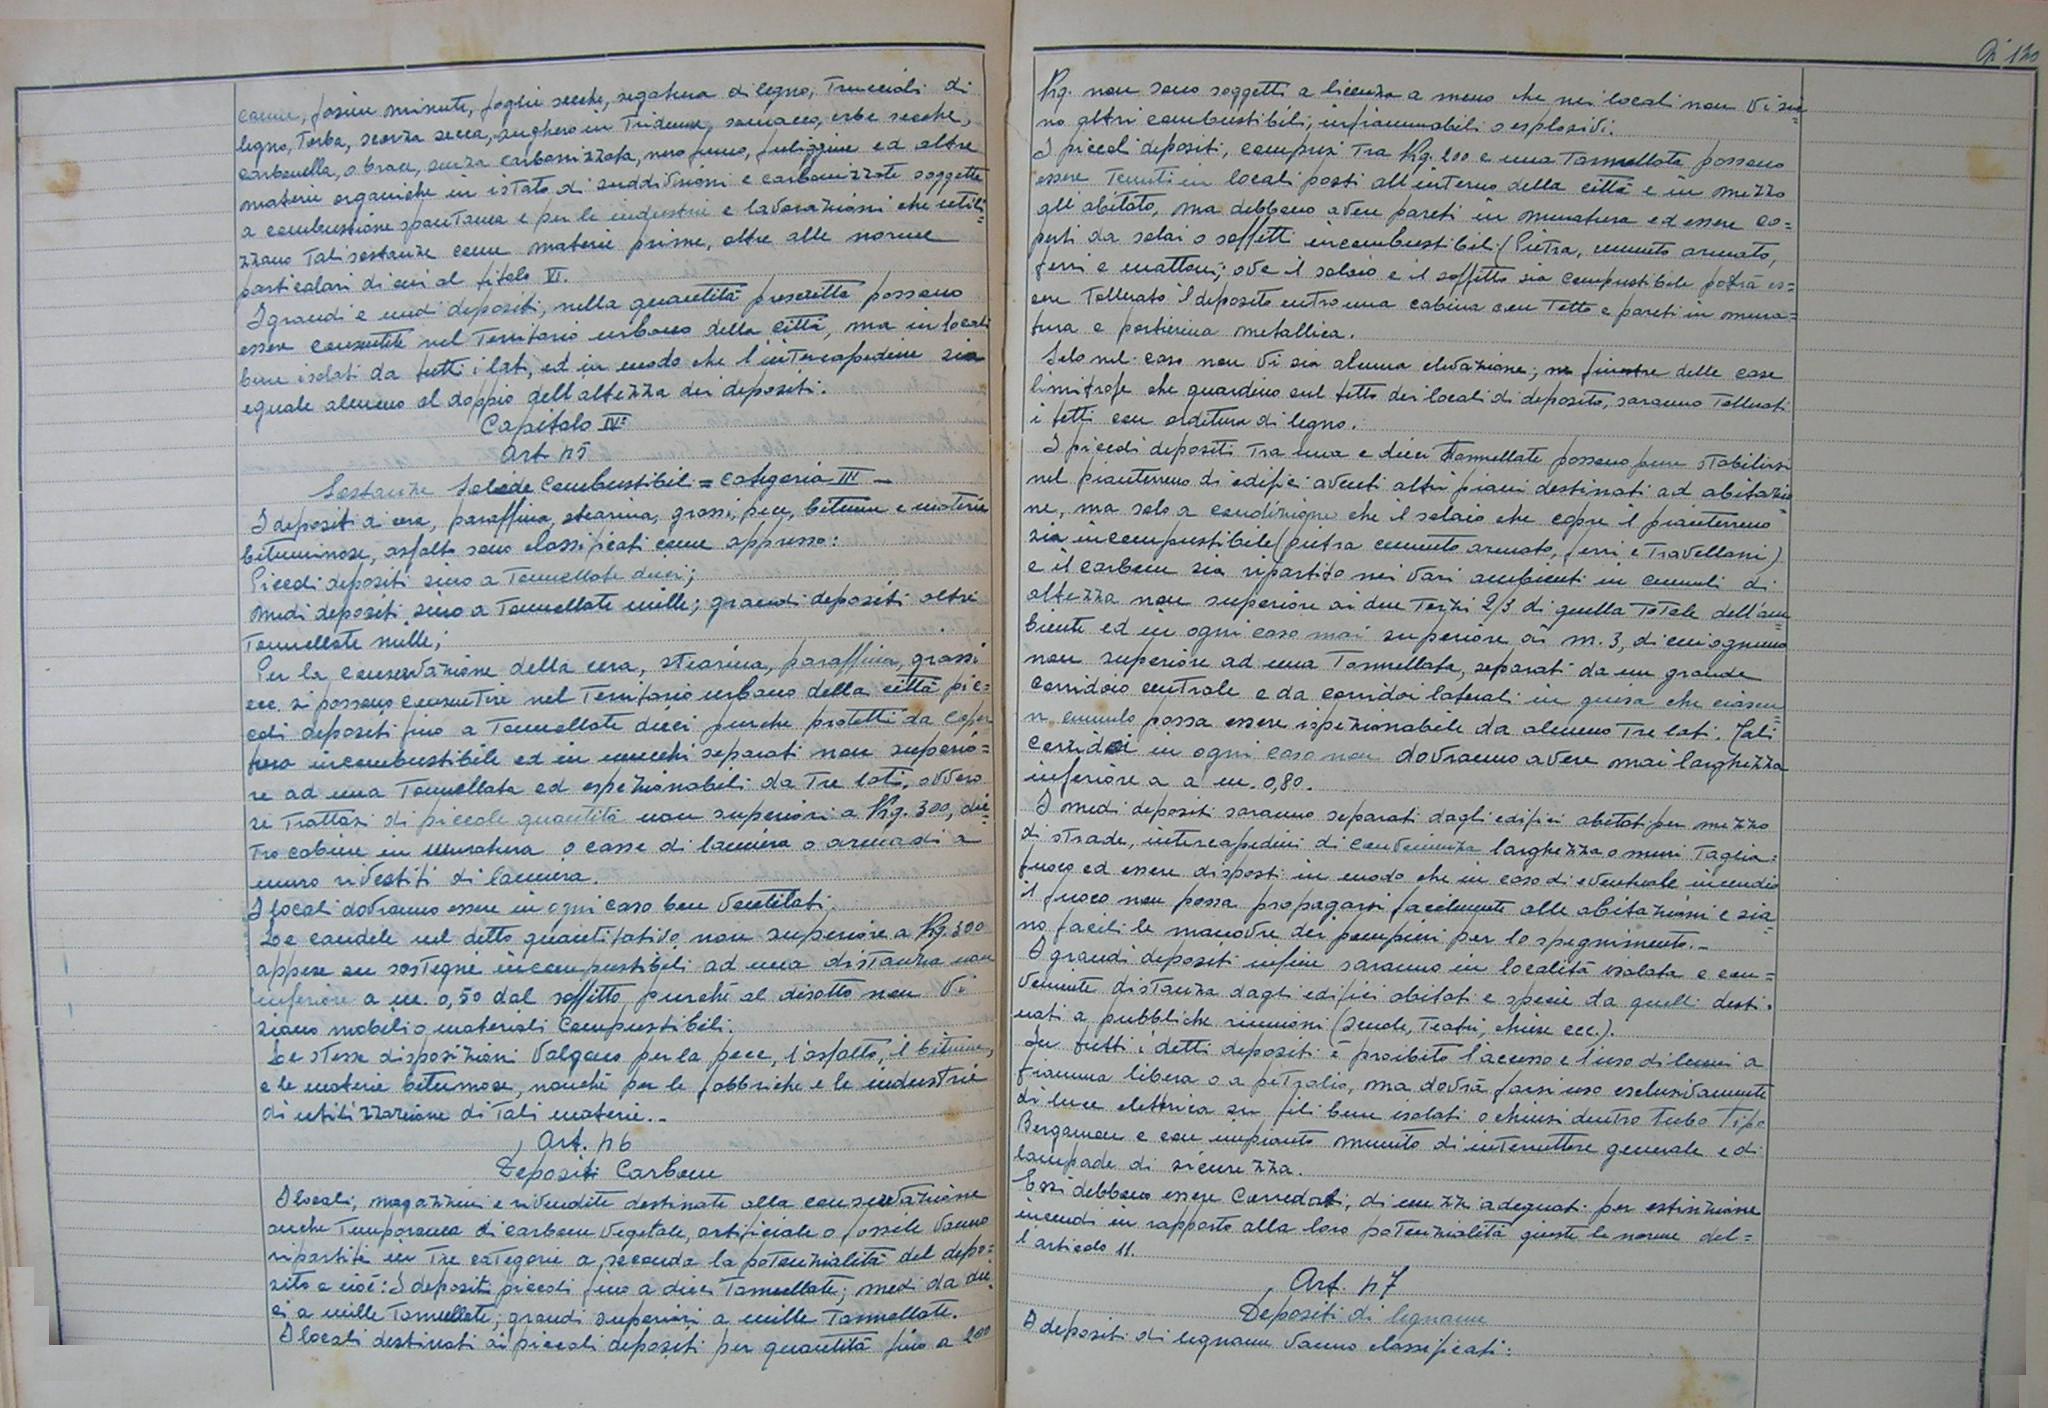 canne, fascine minute, foglie secche, segatura di legno, Truccioli di
legno, Torba, scorza secca, sughero in Tridume, somacco, erbe secche,
carbonella, o brace, sanza carbonizzata, nero fumo, fuliggine ed altre
materie organiche in istato di suddivisioni e carbonizzate soggette
a combustione spontanea e per le industrie e lavorazioni che utili=
zzano Tali sostanze come materie prime, oltre alle norme
particolari di cui al titolo VI.
I grandi e medi depositi, nella quantità prescritta possono
essere consentite nel Territorio urbano della città, ma in locali
bene isolati da tutti i lati, ed in modo che l'intercapedine sia
eguale almeno al doppio dell'altezza dei depositi.
Capitolo IV°
Art 45
Sostanze Solide Combustibili = Categoria III -
I depositi di cera, paraffina, stearina, grassi, pece, bitume e materie
bituminose, asfalto sono classificati come appresso:
Piccoli depositi sino a Tonnellate dieci;
Medi depositi sino a Tonnellate mille; grandi depositi oltre
Tonnellate mille;
Per la conservazione della cera, stearina, paraffina, grassi
ecc. si possono consentire nel Territorio urbano della città pic=
coli depositi fino a Tonnellate dieci purche protetti da coper
tura incombustibile ed in mucchi separati non superio=
re ad una Tonnellata ed espezionabili da Tre lati, ovvero
se Trattasi di piccole quantità non superiori a Kg. 300, die=
Tro cabine in Muratura o casse di lamiera o armadi a
muro rivestiti di lamiera.
I locali dovranno essere in ogni caso ben ventilati.
Le candele nel detto quantitativo non superiore a Kg. 300
appese su sostegni incombustibili ad una distanza non
inferiore a m. 0,50 dal soffitto, purchè al disotto non vi
siano mobili o materiali Combustibili.
Le stesse disposizioni Valgono per la pece, l'asfalto, il bitume,
e le materie bitumose, nonchè per le fabbriche e le industrie
di utilizzazione di Tali materie.-
Art. 46
Depositi Carbone
I locali, magazzini e rivendite destinate alla conservazione
anche Temporanea di carbone vegetale, artificiale o fossile vanno
ripartiti in Tre categorie a seconda la potenzialità del depo=
sito e cioè: I depositi piccoli fino a dieci Tonnellate; medi da die
ci a mille Tonnellate; grandi superiori a mille Tonnellate.
I locali destinati ai piccoli depositi per quantità fino a 200
120
Kg. non sono soggetti a licenza a meno che nei locali non vi sia=
no altri combustibili, infiammabili o esplosivi.
I piccoli depositi, compresi Tra Kg. 200 e una Tonnellata possono
essere Tenuti in locali posti all'interno della città e in mezzo
gli abitato, ma debbono avere pareti in muratura ed essere co=
perti da solai o soffitti incombustibili (Pietra, cemento armato,
ferri e mattoni; ove il solaio e il soffitto sia combustibile potrà es=
sere Tollerato il deposito entro una cabina con Tetto e pareti in mura=
tura e portierina metallica.
Solo nel caso non vi sia alcuna elevazione, ne finestre delle case
limitrofe che guardino sul tetto dei locali di deposito, saranno Tollerati
i tetti con orditura di legno.
I piccoli depositi Tra una e dieci Tonnellate possono pure stabilirsi
nel pianterreno di edifici aventi altri piani destinati ad abitazio
ne, ma solo a condizione che il solaio che copre il pianterreno
sia incombustibile (pietra cemento armato, ferri e Travelloni)
e il carbone sia ripartito nei vari ambienti in cumuli di
altezza non superiore ai due Terzi 2/3 di quella Totale dell'am
biente ed in ogni caso mai superiore ai m. 3, di cui ognuno
non superiore ad una Tonnellata, separati da un grande
corridoio centrale e da corridoi laterali in guisa che ciascu=
n cumulo possa essere ispezionabile da almeno Tre lati. Tali
corridoi in ogni caso non dovranno avere mai larghezza
inferiore a a m. 0,80.
I medi depositi saranno separati dagli edifici abitati per mezzo
di strade, intercapedini di convenienza larghezza o muri Taglia=
fuoco ed essere disposti in modo che in caso di eventuale incendio
il fuoco non possa propagarsi facilmente alle abitazioni e sia=
no facili le manovre dei pompieri per lo spegnimento.-
I grandi depositi infine saranno in località isolata e con=
veniente distanza dagli edifici abitati e specie da quelli desti-
nati a pubbliche riunioni (Scuole, Teatri, chiese ecc.).
In tutti i detti depositi è proibito l'accesso e l'uso di lumi a
fiamma libera o a petrolio, ma dovrà farsi uso esclusivamente
di luce elettrica su fili bene isolati o chiusi dentro tubo Tipo
Bergaman e con impianto munito di interruttore generale e di
lampade di sicurezza.
Essi debbono essere corredati, di mezzi adeguati per estinzione
incendi in rapporto alla loro potenzialità giuste le norme del=
l'articolo 11.
Art. 47
Depositi di legname
I depositi di legname vanno classificati: